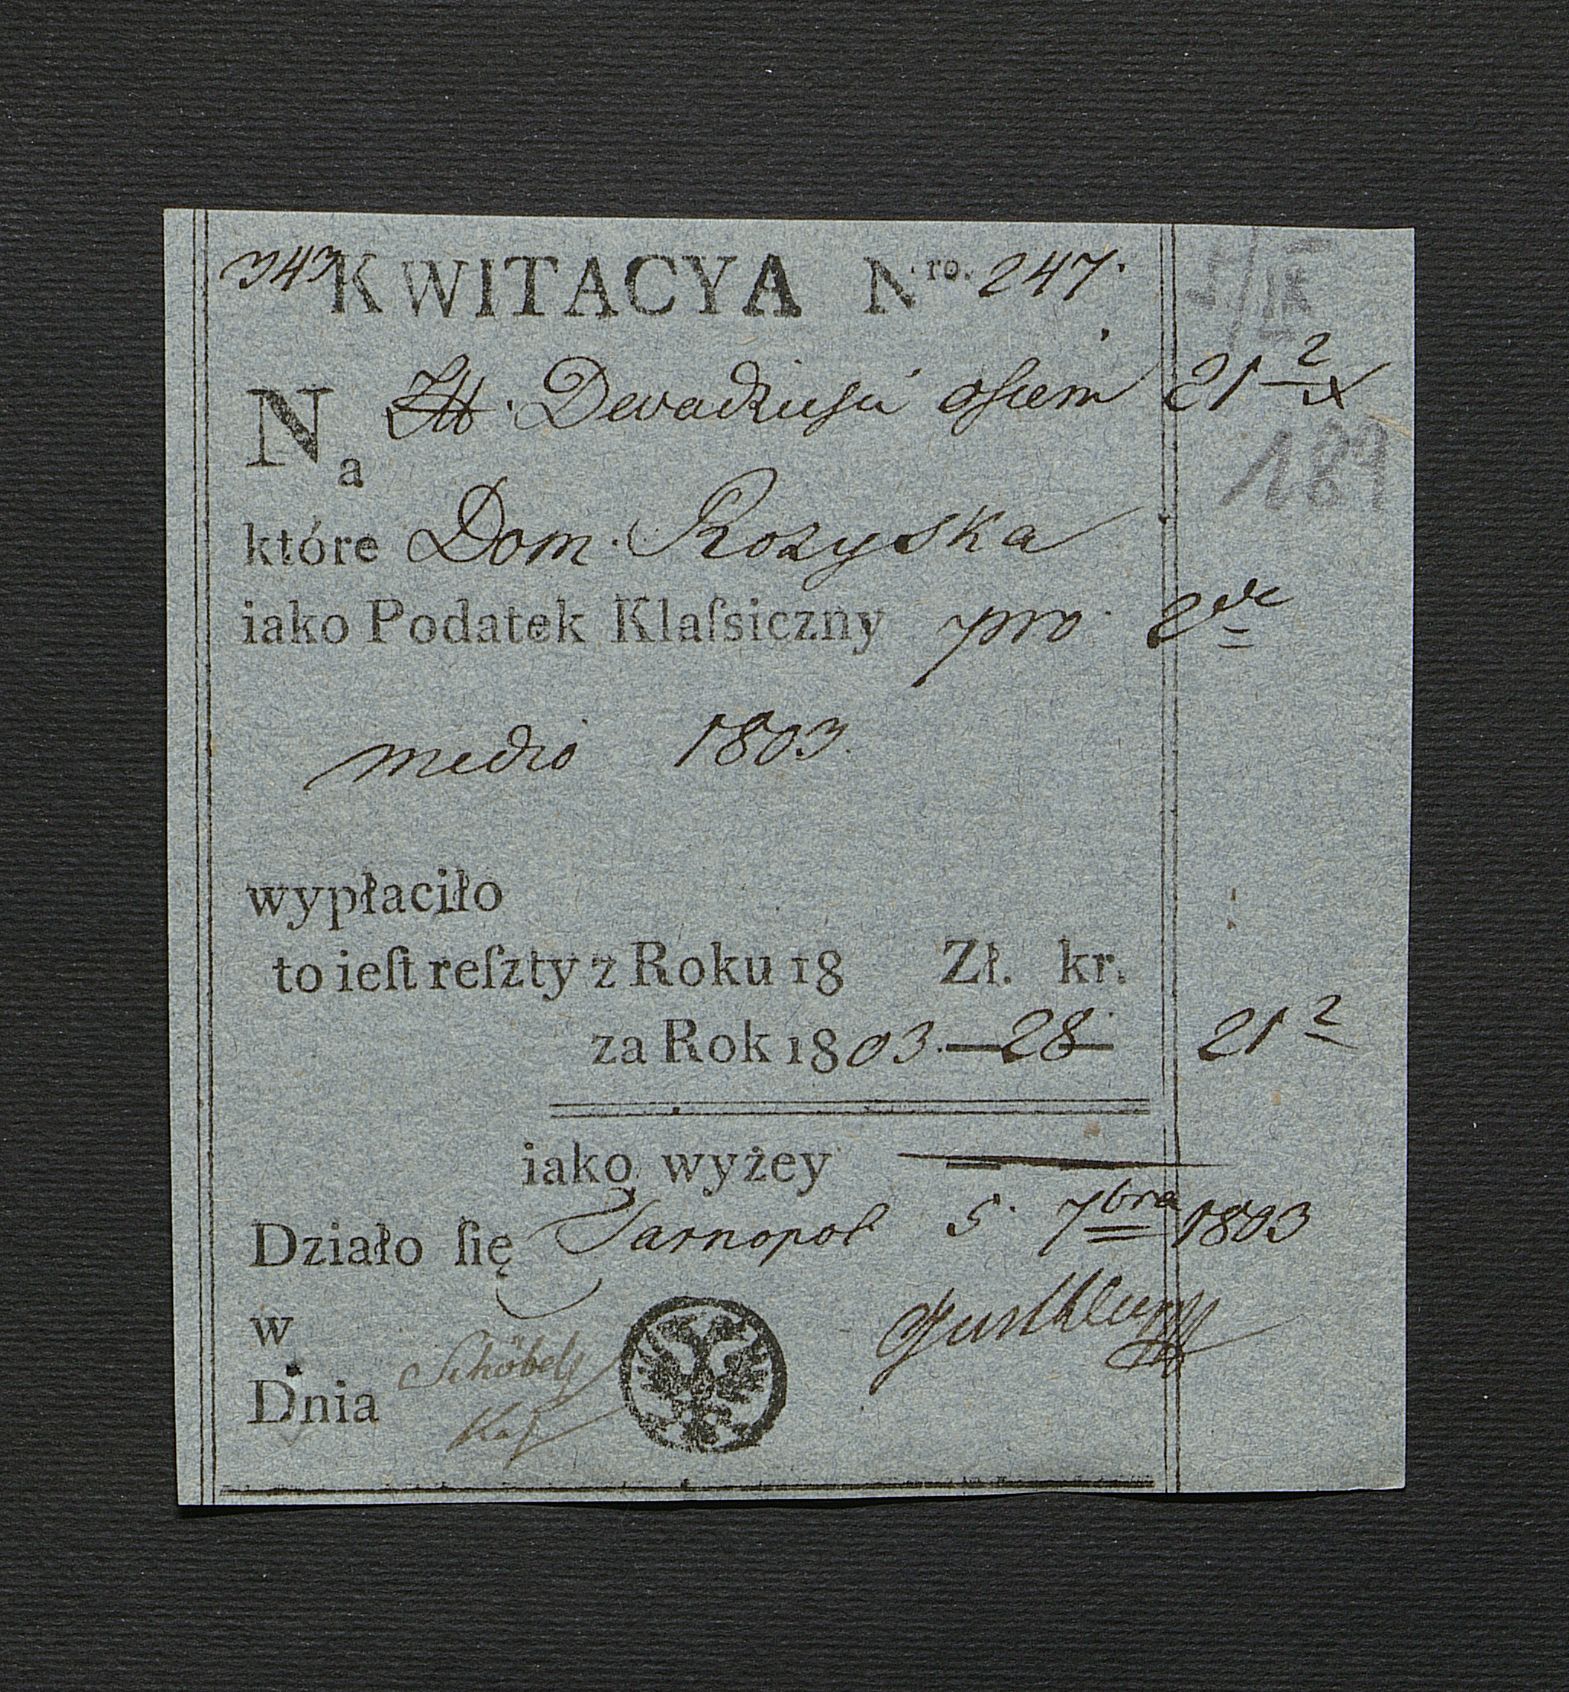 343 KWITACYA Nro. 247.
5/IX
Na Złł. Dwadzieścia osiem 21 2/x
189
które Dom. Rozyska
iako Podatek Klaſsiczny pro 2de
medio 1803.
wypłaciło
to ieſt reſzty z Roku 18 Zł. kr.
za Rok 1803. — 28 21 2
iako wyżey
Działo ſię Tarnopol 5. 7bra 1803
w
Schöbel
Dnia